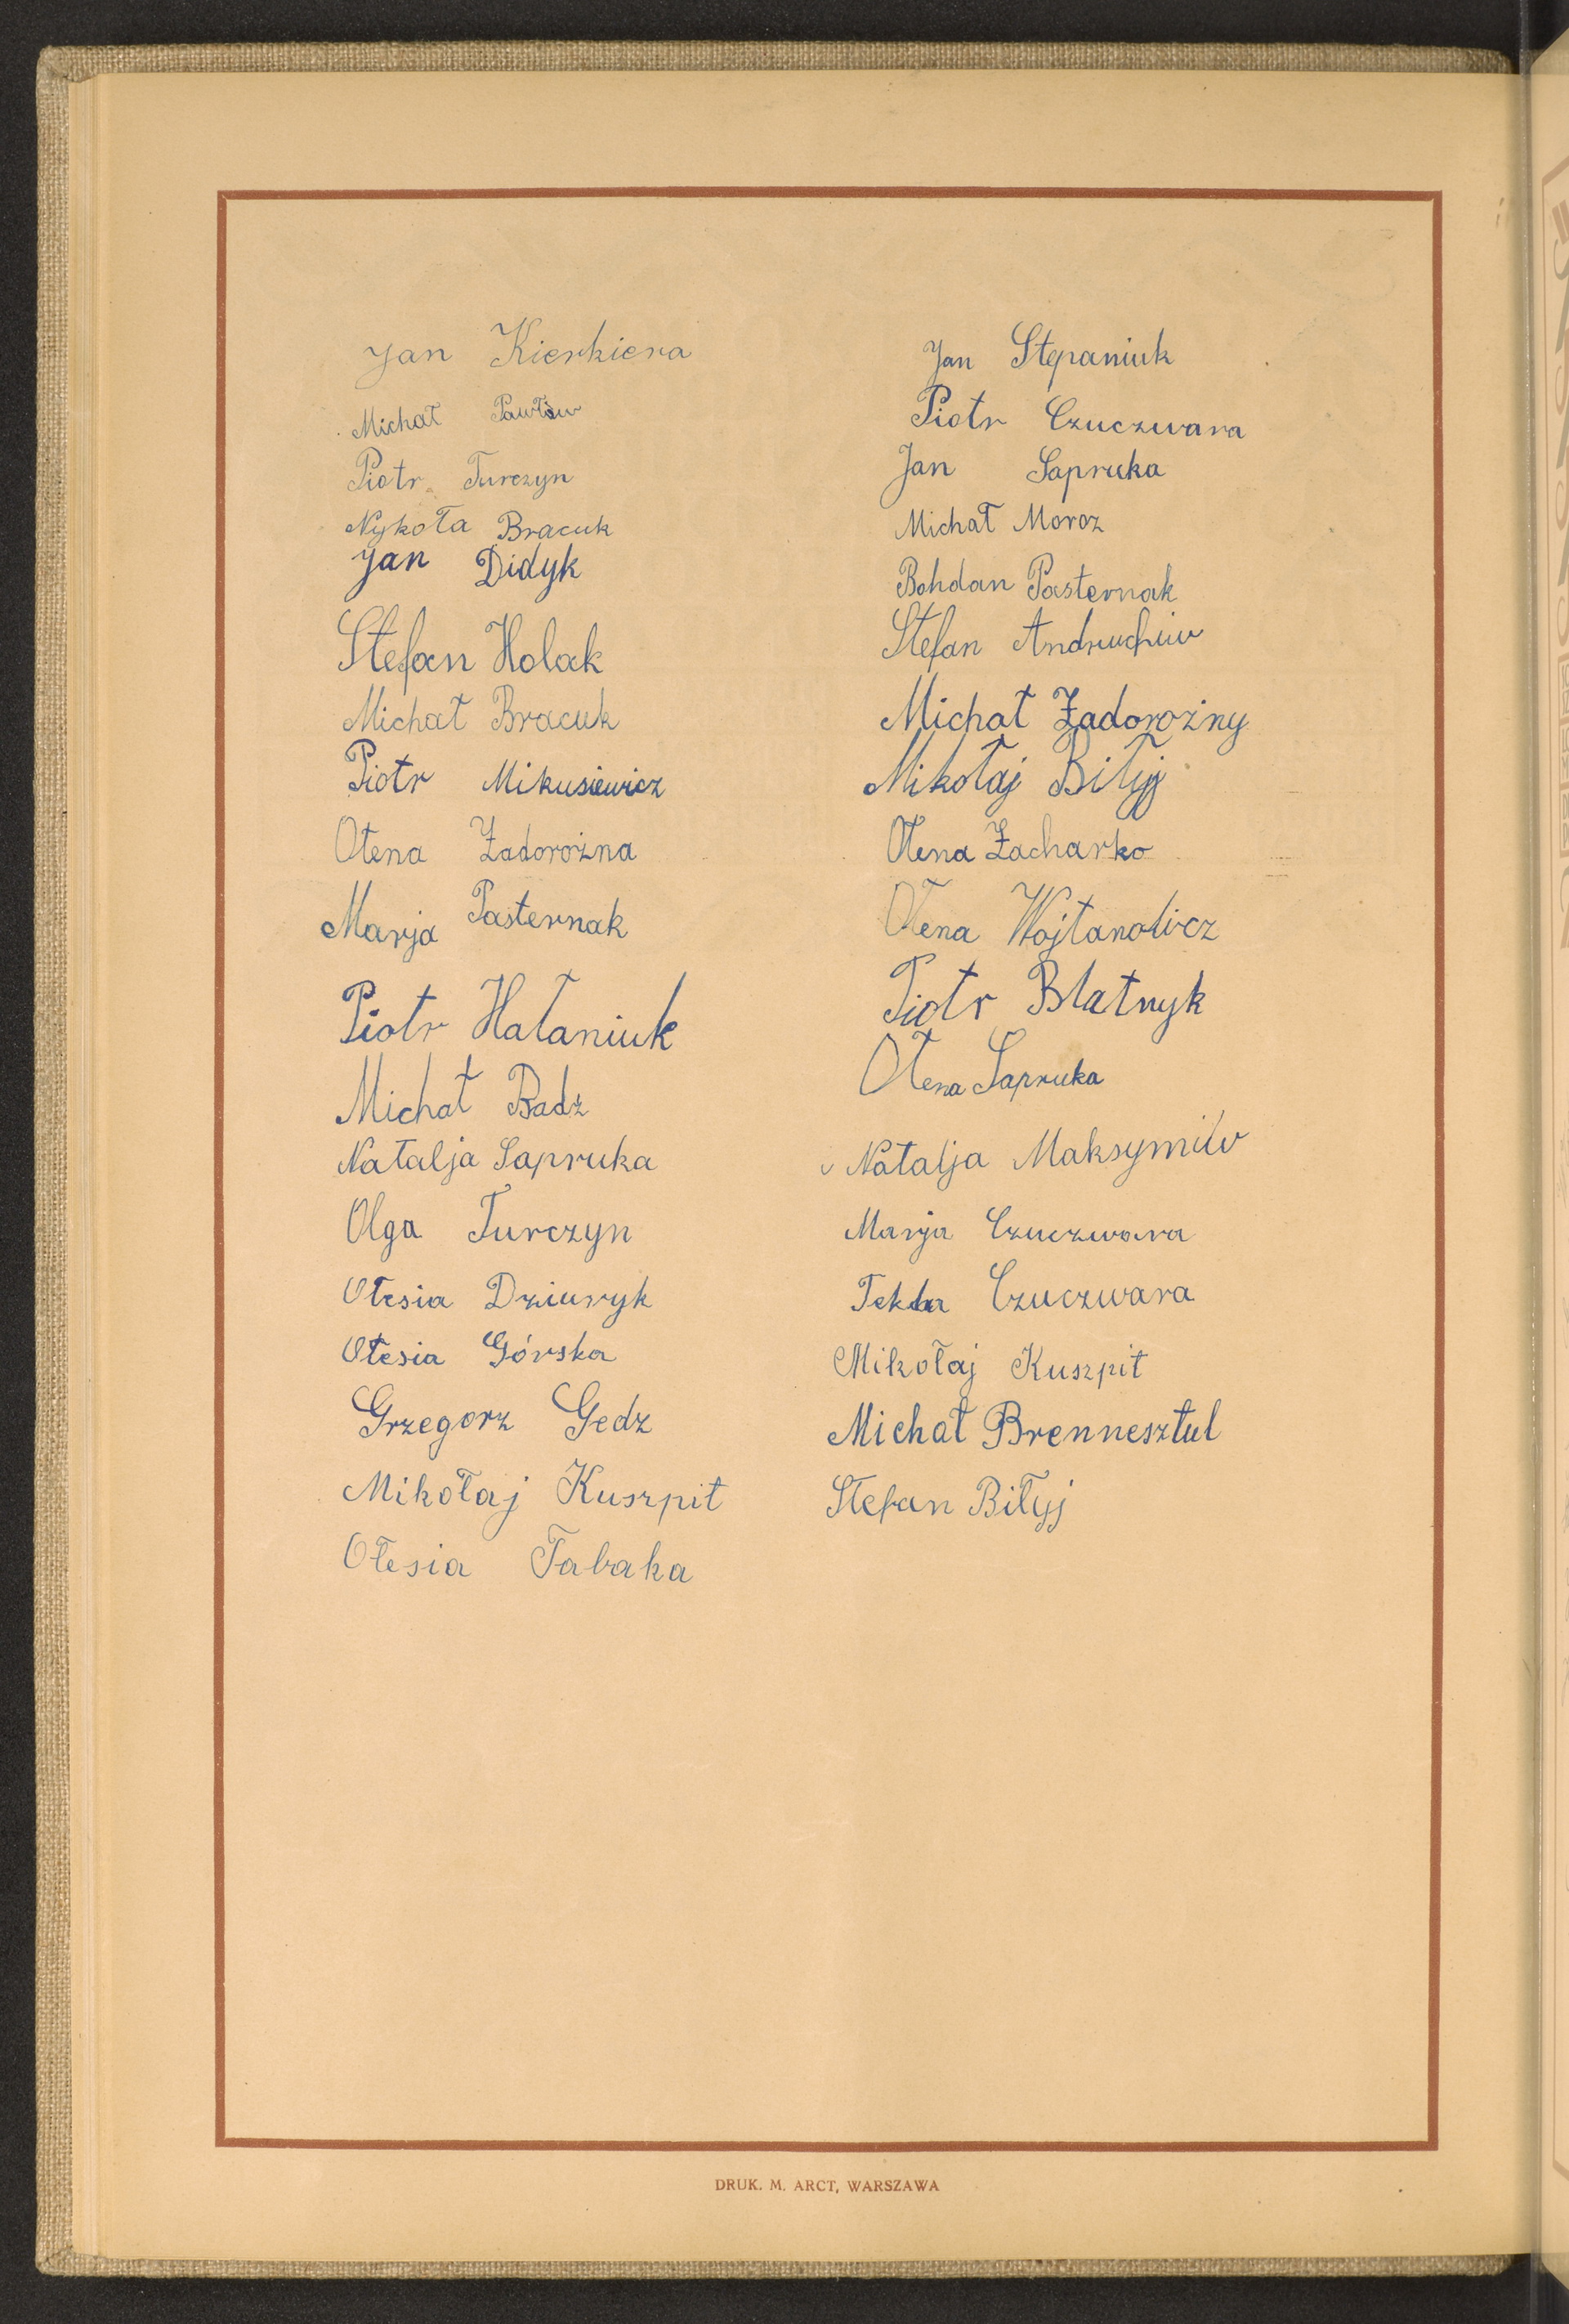 Jan Kierkiera
Michał Pawłów
Piotr Turczyn
Nykoła Bracuk
Jan Didyk
Stefan Holak
Michał Bracuk
Piotr Mikusiewicz
Ołena Zadorożna
Marja Pasternak
Piotr Hałaniuk
Michał Badz
Natalja Sapruka
Olga Turczyn
Ołesia Dziuryk
Ołesia Górska
Grzegorz Gedz
Mikołaj Kuszpit
Ołesia Tabaka
Jan Stepaniuk
Piotr Czuczwara
Jan Sapruka
Michał Moroz
Bohdan Pasternak
Stefan Andruchiw
Michał Zadorożny
Mikołaj Biłyj
Ołena Zacharko
Ołena Wojtanowicz
Piotr Blatnyk
Ołena Sapruka
Natalja Maksymiw
Marja Czuczwara
Tekla Czuczwara
Mikołaj Kuszpit
Michał Brennesztul
Stefan Biłyj
DRUK. M. ARCT, WARSZAWA